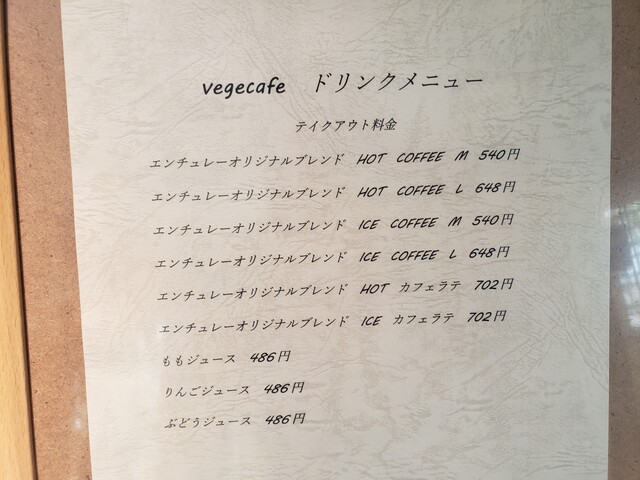 vegecafe ドリンクメニュー
テイクアウト料金
エンチュレーオリジナルブレンド HOT COFFEE M 540円
エンチュレーオリジナルブレンド HOT COFFEE L 648円
エンチュレーオリジナルブレンド ICE COFFEE M 540円
エンチュレーオリジナルブレンド ICE COFFEE L 648円
エンチュレーオリジナルブレンド HOT カフェラテ 702円
エンチュレーオリジナルブレンド ICE カフェラテ 702円
ももジュース 486円
りんごジュース 486円
ぶどうジュース 486円